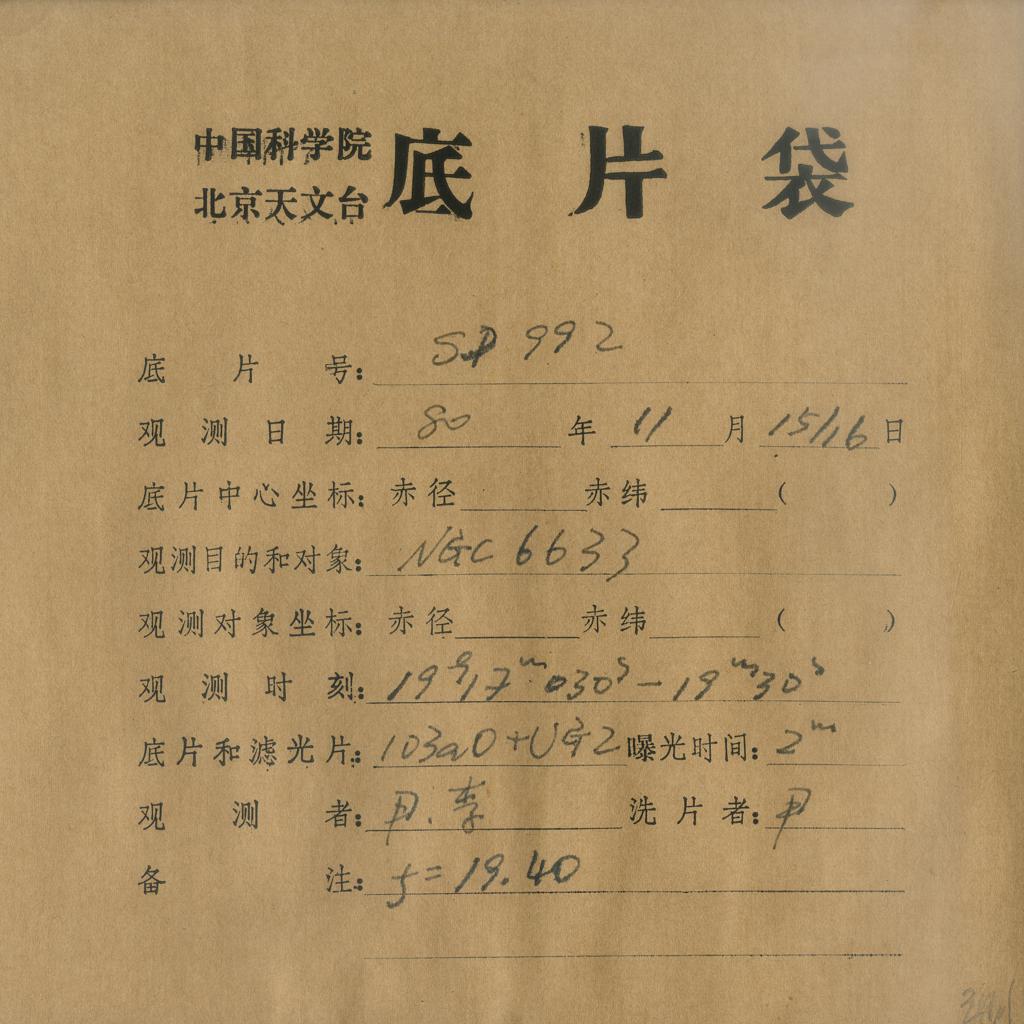 中国科学院
北京天文台 底片袋
底片号: SP 992
观测日期: 80 年 11 月 15/16 日
底片中心坐标: 赤径 赤纬 ( )
观测目的和对象: NGC 6633
观测对象坐标: 赤径 赤纬 ( )
观测时刻: 17ᵐ 30ˢ - 19ᵐ30ˢ
底片和滤光片: 103aO+UG2 曝光时间: 2ᵐ
观测者: 尹.李 洗片者: 尹
备注: f=19.40